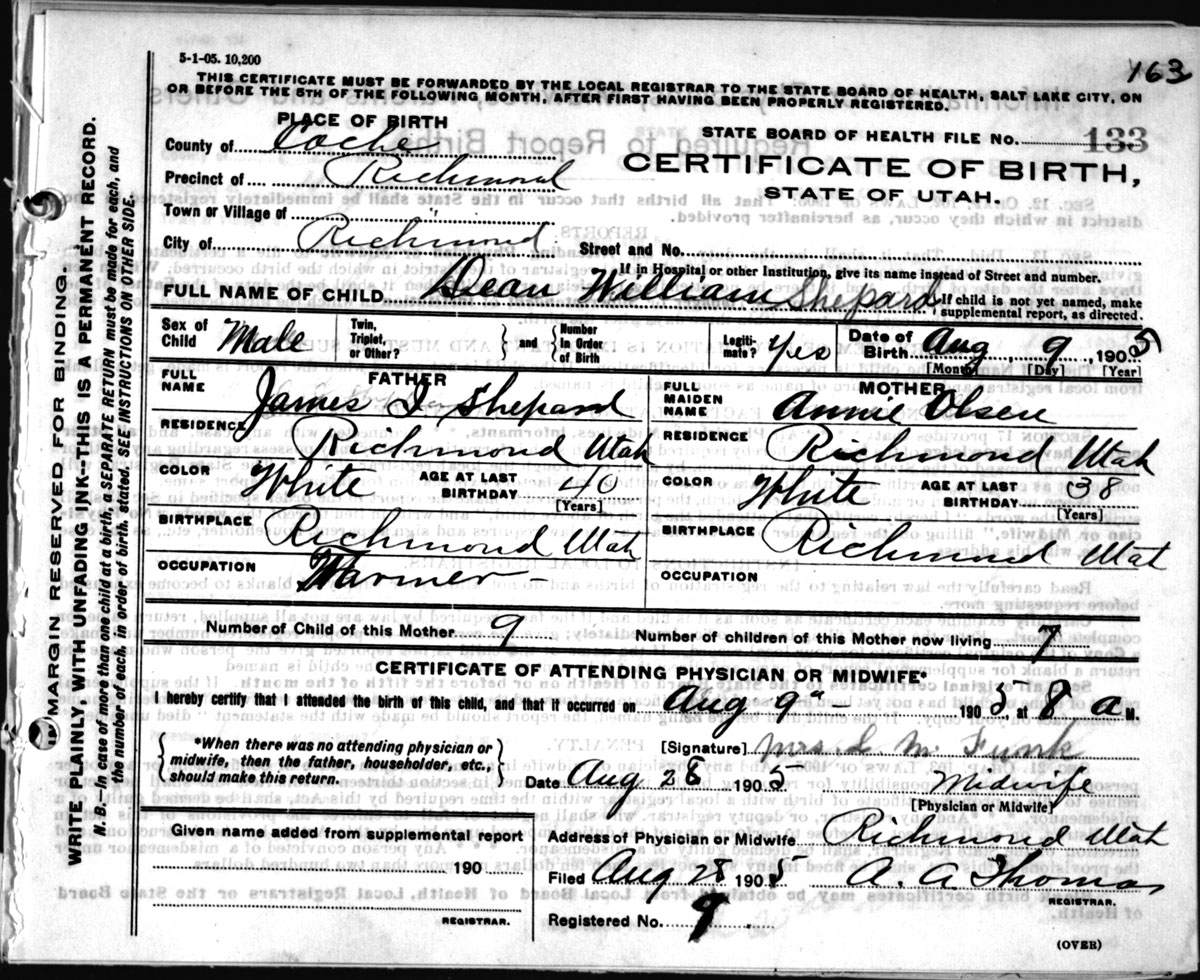 5-1-05. 10,200
163
THIS CERTIFICATE MUST BE FORWARDED BY THE LOCAL REGISTRAR TO THE STATE BOARD OF HEALTH, SALT LAKE CITY, ON
OR BEFORE THE 5TH OF THE FOLLOWING MONTH, AFTER FIRST HAVING BEEN PROPERLY REGISTERED.
PLACE OF BIRTH
STATE BOARD OF HEALTH FILE No. 133
County of Cache
CERTIFICATE OF BIRTH,
Precinct of Richmond
STATE OF UTAH.
Town or Village of "
City of Richmond Street and No.
If in Hospital or other Institution, give its name instead of Street and number.
FULL NAME OF CHILD Dean William Shepard If child is not yet named, make supplemental report, as directed.
Sex of Child Male Twin, Triplet, or Other? and Number in Order of Birth Legitimate? Yes Date of Birth Aug 9, 1905
[Month] [Day] [Year]
FATHER
FULL NAME James I Shepard
RESIDENCE Richmond Utah
COLOR White AGE AT LAST BIRTHDAY 40
[Years]
BIRTHPLACE Richmond Utah
OCCUPATION Farmer
MOTHER
FULL MAIDEN NAME Annie Olsen
RESIDENCE Richmond Utah
COLOR White AGE AT LAST BIRTHDAY 38
[Years]
BIRTHPLACE Richmond Utah
OCCUPATION
Number of Child of this Mother 9 Number of children of this Mother now living 7
CERTIFICATE OF ATTENDING PHYSICIAN OR MIDWIFE*
I hereby certify that I attended the birth of this child, and that it occurred on Aug 9" 1905, at 8 a M.
*When there was no attending physician or
midwife, then the father, householder, etc.,
should make this return.
[Signature] Mrs M. Funk
Date Aug 28 1905 Midwife
[Physician or Midwife]
Given name added from supplemental report
190
REGISTRAR.
Address of Physician or Midwife Richmond Utah
Filed Aug 28 1905 A. A. Thomas
REGISTRAR.
Registered No. 9
(OVER)
MARGIN RESERVED FOR BINDING.
WRITE PLAINLY, WITH UNFADING INK--THIS IS A PERMANENT RECORD.
N. B.--In case of more than one child at a birth, a SEPARATE RETURN must be made for each, and
the number of each, in order of birth, stated SEE INSTRUCTIONS ON OTHER SIDE.